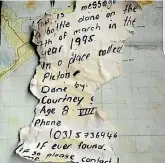 This is message
bottle done on the
7th of march in the
year 1995
In a place called
Picton
Done by
Courtney
Age 8 VIII
Phone
(03) 5736946
If ever found.
please contact!